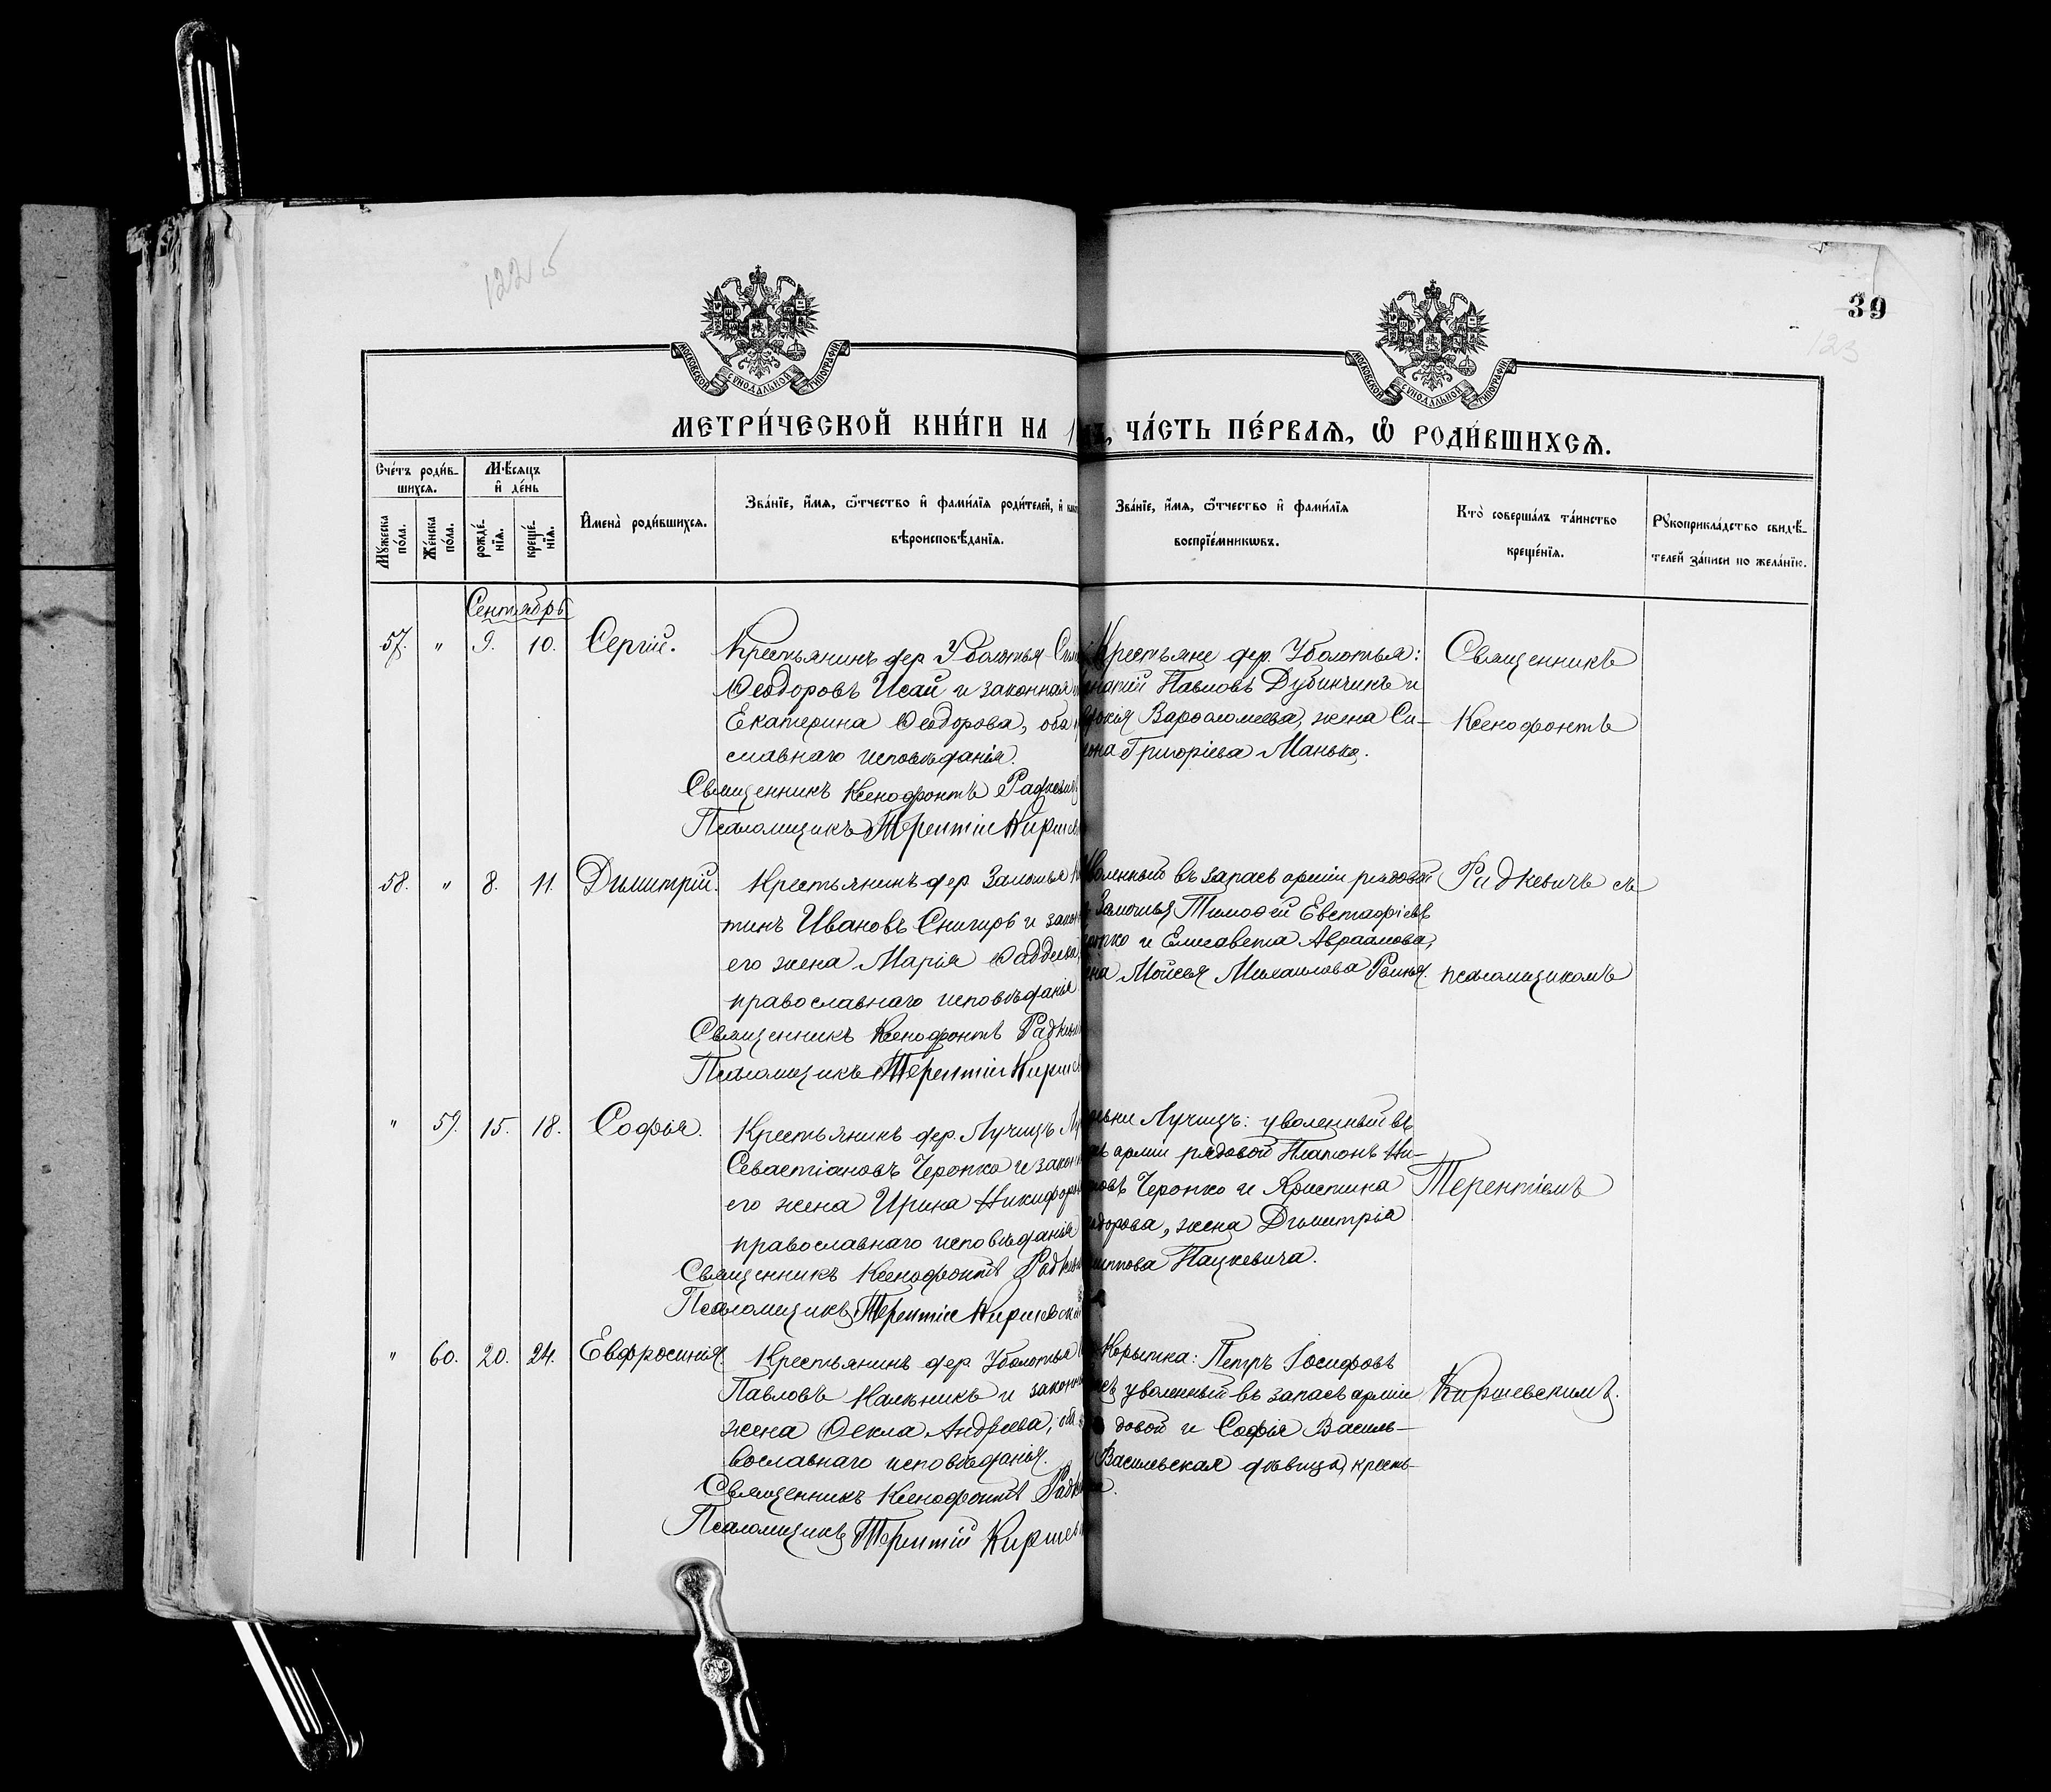 39
123
МОСКОВСКОЙ СУНОДАЛЬНОЙ ТИПОГРАФІИ
МОСКОВСКОЙ СУНОДАЛЬНОЙ ТИПОГРАФІИ
МЕТРИ́ЧЕСКОЙ КНИ́ГИ НА 1
, ЧА́СТЬ ПЕ́РВАѦ, Ѡ҆ РОДИ́ВШИХСѦ.
Сче́тъ роди́в-
шихсѧ.
Мѣ́сѧцъ
и҆ де́нь
Мꙋ́жеска по́ла.
Же́нска по́ла.
рожде́-
нїѧ.
креще́-
нїѧ.
И҆мена̀ роди́вшихсѧ.
Зва́нїе, и҆́мѧ, ѻ҆́тчество и҆ фами́лїѧ роди́телей, и҆
вѣроисповѣ́данїѧ.
Зва́нїе, и҆́мѧ, ѻ҆́тчество и҆ фами́лїѧ
воспрїе́мникѡвъ.
Кто̀ соверша́лъ та́инство
креще́нїѧ.
Рꙋкоприкла́дство свидѣ́-
телей за́писи по жела́нїю.
Сентябрь
57. " 9. 10. Сергій.
Крестьянинъ дер. Уболотья
Ѳеодоровъ Исай и законная
Екатерина Ѳеодорова, оба
славнаго исповѣданія.
Священникъ Ксенофонтъ Радкевичъ
Псаломщикъ Терентій Кирше
Крестьяне дер. Уболотья:
Павловъ Дубинчикъ и
Варфоломеева, жена Си-
Григоріева Манько.
Священникъ
Ксенофонтъ
58. " 8. 11. Димитрій.
Крестьянинъ дер. Замошья
тинъ Ивановъ Снигирь и закон
его жена Марія Ѳаддеева,
православнаго исповѣданія.
Священникъ Ксенофонтъ Радкев
Псаломщикъ Терентій Кирше
въ запасъ арміи рядовой
Замошья Тимоѳей Евстафіевъ
и Елисавета Авраамова,
Мойсея Михаилова
Радкевичъ съ
псаломщикомъ
" 59. 15. 18. Софія.
Крестьянинъ дер. Лучицъ
Севастіановъ Черопко и закон
его жена Ирина Никифоро
православнаго исповѣданія
Священникъ Ксенофонтъ Радкев
Псаломщикъ Терентій Киршевскій
Лучицъ: уволенный въ
арміи рядовой Платонъ Ни-
Черопко и Христина
жена Димитрія
Пацкевича.
Терентіемъ
" 60. 20. 24. Евфросинія.
Крестьянинъ дер. Уболотья
Павловъ Кальникъ и законная
жена Ѳекла Андреева, оба
вославнаго исповѣданія.
Священникъ Ксенофонтъ Радк
Псаломщикъ Терентій Киршев
Корытка: Петръ Іосифовъ
уволенный въ запасъ арміи
довой и Софія Василь-
Васильевская дѣвица, кресть-
Киршевскимъ.